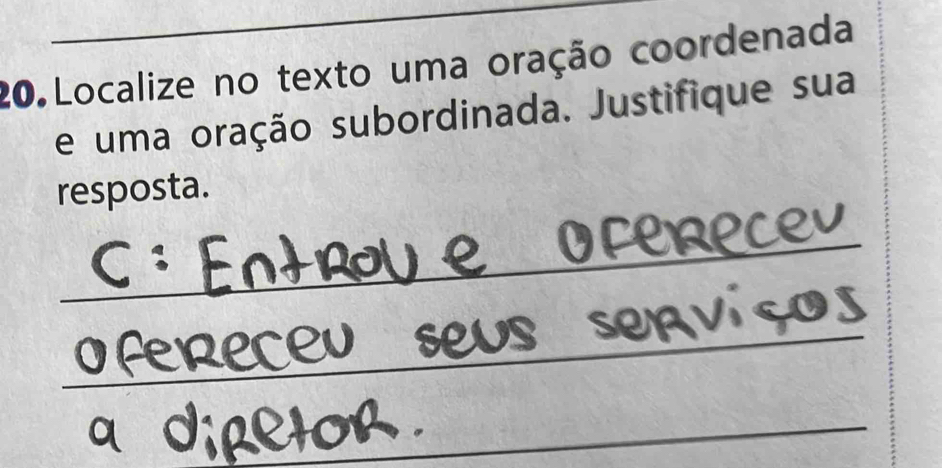 20. Localize no texto uma oração coordenada
e uma oração subordinada. Justifique sua
resposta.
C: Entrou e ofereceu
ofereceu seus serviços
a diretor.